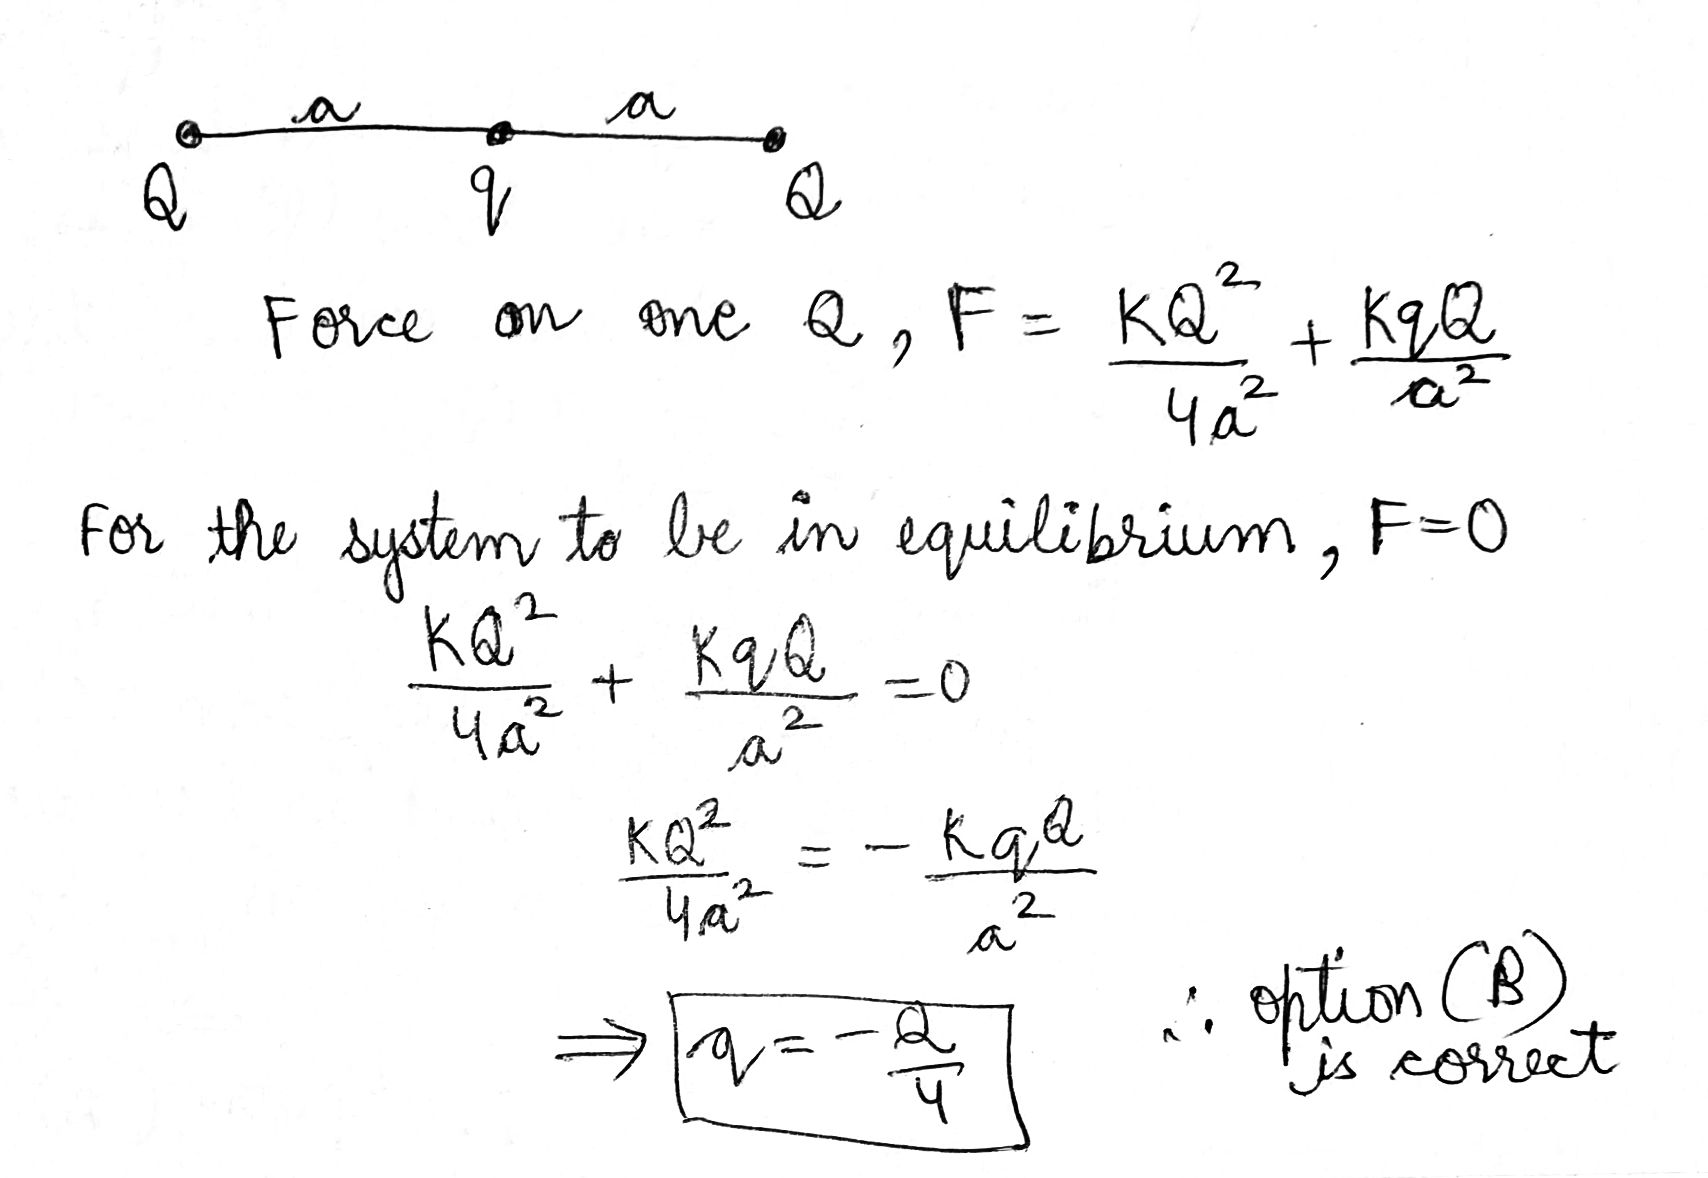 a a
Q q Q
Force on one Q, F = KQ²/4a² + KqQ/a²
For the system to be in equilibrium, F=0
KQ²/4a² + KqQ/a² =0
KQ²/4a² = - KqQ/a²
⇒ q = -Q/4 ∴ option (B)
is correct